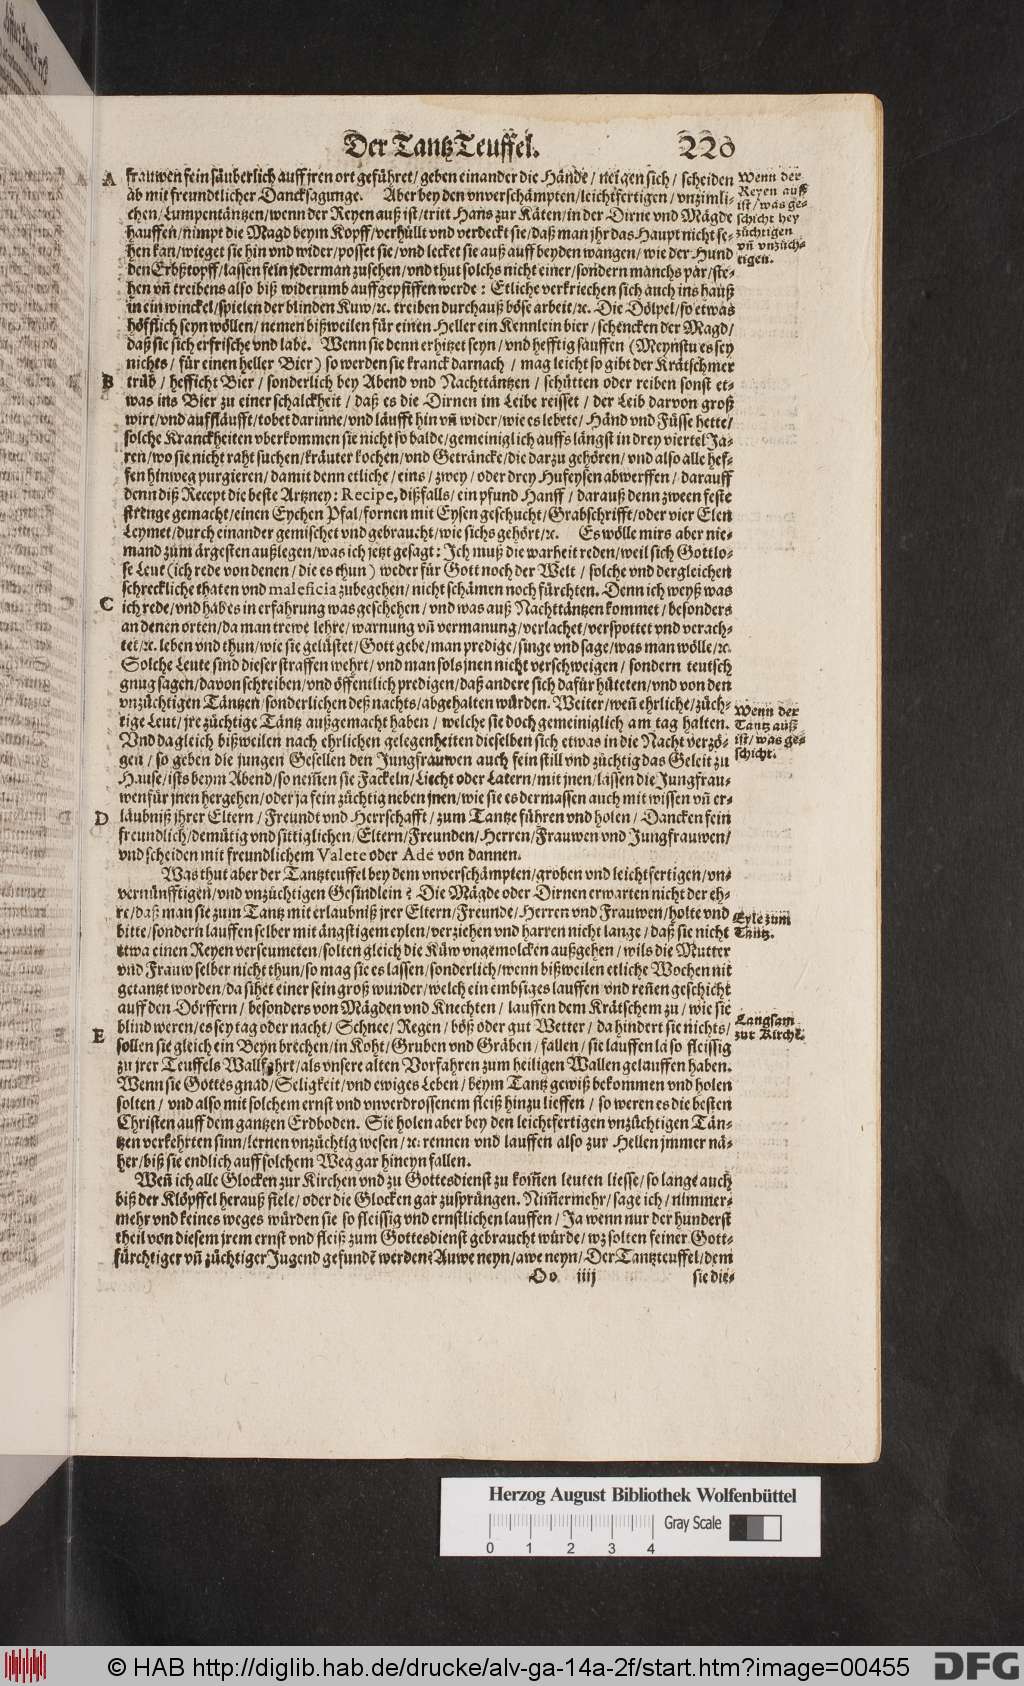 Der Tantz Teuffel. 220
A frauwen fein säuberlich auff jren ort geführet / geben einander die Hände / neigen sich / scheiden
ab mit freundtlicher Dancksagunge. Aber bey den vnverschämpten / leichtfertigen / vnzimli-
chen / Lumpentäntzen / wenn der Reyen auß ist / tritt Hans zur Käten / in der Dirne vnd Mägde
hauffen / nimpt die Magd beym Kopff / verhüllt vnd verdeckt sie / daß man jhr das Haupt nicht se-
hen kan / wieget sie hin vnd wider / posset sie / vnd lecket sie auß auff beyden wangen / wie der Hund
den Erbßtopff / lassen feln jederman zusehen / vnd thut solchs nicht einer / sondern manchs pâr / ste-
hen vñ treibens also biß widerumb auffgepfiffen werde : Etliche verkriechen sich auch ins hauß
in ein winckel / spielen der blinden Kuw / ꝛc. treiben durchauß böse arbeit / ꝛc. Die Dölpel / so etwas
höfflich seyn wöllen / nemen bißweilen für einen Heller ein Kennlein bier / schencken der Magd /
daß sie sich erfrische vnd labe. Wenn sie denn erhitzet seyn / vnd hefftig sauffen (Meynstu es sey
nichts / für einen heller Bier) so werden sie kranck darnach / mag leicht so gibt der Krätschmer
B trüb / hefficht Bier / sonderlich bey Abend vnd Nachttäntzen / schütten oder reiben sonst et-
was ins Bier zu einer schalckheit / daß es die Dirnen im Leibe reisset / der Leib darvon groß
wirt / vnd auffläufft / tobet darinne / vnd läufft hin vñ wider / wie es lebete / Händ vnd Füsse hette /
solche Kranckheiten vberkommen sie nicht so balde / gemeiniglich auffs längst in drey viertel Ja-
ren / wo sie nicht raht suchen / kräuter kochen / vnd Geträncke / die darzu gehören / vnd also alle hef-
fen hinweg purgieren / damit denn etliche / eins / zwey / oder drey Hufeysen abwerffen / darauff
denn diß Recept die beste Artzney : Recipe, dißfalls / ein pfund Hanff / darauß denn zween feste
strenge gemacht / einen Eychen Pfal / fornen mit Eysen geschucht / Grabschrifft / oder vier Elen
Leymet / durch einander gemischet vnd gebraucht / wie sichs gehört / ꝛc. Es wölle mirs aber nie-
mand zum ärgesten außlegen / was ich jetzt gesagt : Ich muß die warheit reden / weil sich Gottlo-
se Leut (ich rede von denen / die es thun) weder für Gott noch der Welt / solche vnd dergleichen
schreckliche thaten vnd maleficia zubegehen / nicht schämen noch fürchten. Denn ich weyß was
C ich rede / vnd hab es in erfahrung was geschehen / vnd was auß Nachttäntzen kommet / besonders
an denen orten / da man trewe lehre / warnung vñ vermanung / verlachet / verspottet vnd verach-
tet / ꝛc. leben vnd thun / wie sie gelüstet / Gott gebe / man predige / singe vnd sage / was man wölle / ꝛc.
Solche Leute sind dieser straffen wehrt / vnd man sols jnen nicht verschweigen / sondern teutsch
gnug sagen / davon schreiben / vnd öffentlich predigen / daß andere sich dafür hüteten / vnd von den
vnzüchtigen Täntzen / sonderlichen deß nachts / abgehalten würden. Weiter / weñ ehrliche / züch-
tige Leut / jre züchtige Täntz außgemacht haben / welche sie doch gemeiniglich am tag halten.
Vnd da gleich bißweilen nach ehrlichen gelegenheiten dieselben sich etwas in die Nacht verzö-
gen / so geben die jungen Gesellen den Jungfrauwen auch fein still vnd züchtig das Geleit zu
Hause / ists beym Abend / so neṁen sie Fackeln / Liecht oder Latern / mit jnen / lassen die Jungfrau-
wen für jnen hergehen / oder ja fein züchtig neben jnen / wie sie es dermassen auch mit wissen vñ er-
D läubniß jhrer Eltern / Freundt vnd Herrschafft / zum Tantze führen vnd holen / Dancken fein
freundlich / demütig vnd sittiglichen / Eltern / Freunden / Herren / Frauwen vnd Jungfrauwen /
vnd scheiden mit freundlichem Valete oder Ade von dannen.
Was thut aber der Tantzteuffel bey dem vnverschämpten / groben vnd leichtfertigen / vn-
vernünfftigen / vnd vnzüchtigen Gesündlein ? Die Mägde oder Dirnen erwarten nicht der eh-
re / daß man sie zum Tantz mit erlaubniß jrer Eltern / Freunde / Herren vnd Frauwen / holte vnd
bitte / sondern lauffen selber mit ängstigem eylen / verziehen vnd harren nicht lange / daß sie nicht
etwa einen Reyen verseumeten / solten gleich die Küw vngemolcken außgehen / wils die Mutter
vnd Frauw selber nicht thun / so mag sie es lassen / sonderlich / wenn bißweilen etliche Wochen nit
getantzt worden / da sihet einer sein groß wunder / welch ein embsiges lauffen vnd reñen geschicht
auff den Dörffern / besonders von Mägden vnd Knechten / lauffen dem Krätschem zu / wie sie
E blind weren / es sey tag oder nacht / Schnee / Regen / böß oder gut Wetter / da hindert sie nichts /
sollen sie gleich ein Beyn brechen / in Koht / Gruben vnd Gräben / fallen / sie lauffen la so fleissig
zu jrer Teuffels Wallfahrt / als vnsere alten Vorfahren zum heiligen Wallen gelauffen haben.
Wenn sie Gottes gnad / Seligkeit / vnd ewiges Leben / beym Tantz gewiß bekommen vnd holen
solten / vnd also mit solchem ernst vnd vnverdrossenem fleiß hinzu lieffen / so weren es die besten
Christen auff dem gantzen Erdboden. Sie holen aber bey den leichtfertigen vnzüchtigen Tän-
tzen verkehrten sinn / lernen vnzüchtig wesen / ꝛc. rennen vnd lauffen also zur Hellen jmmer nä-
her / biß sie endlich auff solchem Weg gar hineyn fallen.
Weñ ich alle Glocken zur Kirchen vnd zu Gottesdienst zu koṁen leuten liesse / so lange auch
biß der Klöpffel herauß fiele / oder die Glocken gar zusprüngen. Niṁermehr / sage ich / nimmer-
mehr vnd keines weges würden sie so fleissig vnd ernstlichen lauffen / Ja wenn nur der hunderst
theil von diesem jrem ernst vnd fleiß zum Gottesdienst gebraucht würde / wz solten feiner Gott-
fürchtiger vñ züchtiger Jugend gefundē werden ? Auwe neyn / awe neyn / Der Tantzteuffel / dem
Oo iiij sie die-
Wenn der
Reyen auß
ist / was ge-
schicht bey
züchtigen
vñ vnzüch-
tigen.
Wenn der
Tantz auß
ist / was ge-
schicht.
Eyle zum
Tantz.
Langsam
zur Kirchē.
Herzog August Bibliothek Wolfenbüttel
Gray Scale
0 1 2 3 4
© HAB http://diglib.hab.de/drucke/alv-ga-14a-2f/start.htm?image=00455
DFG